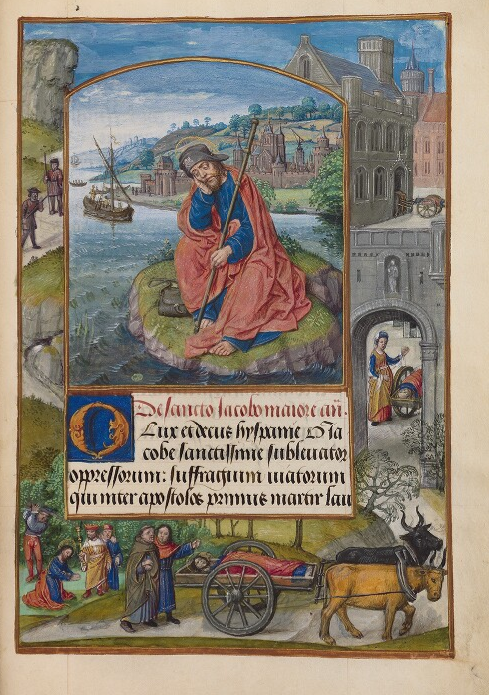 De sancto Iacobo maiore añ.
O Lux et decus hyspanie O Ia
cobe sanctissime subleuator
oppressorum: suffragium uiatorum
qui inter apostolos primus martir lau